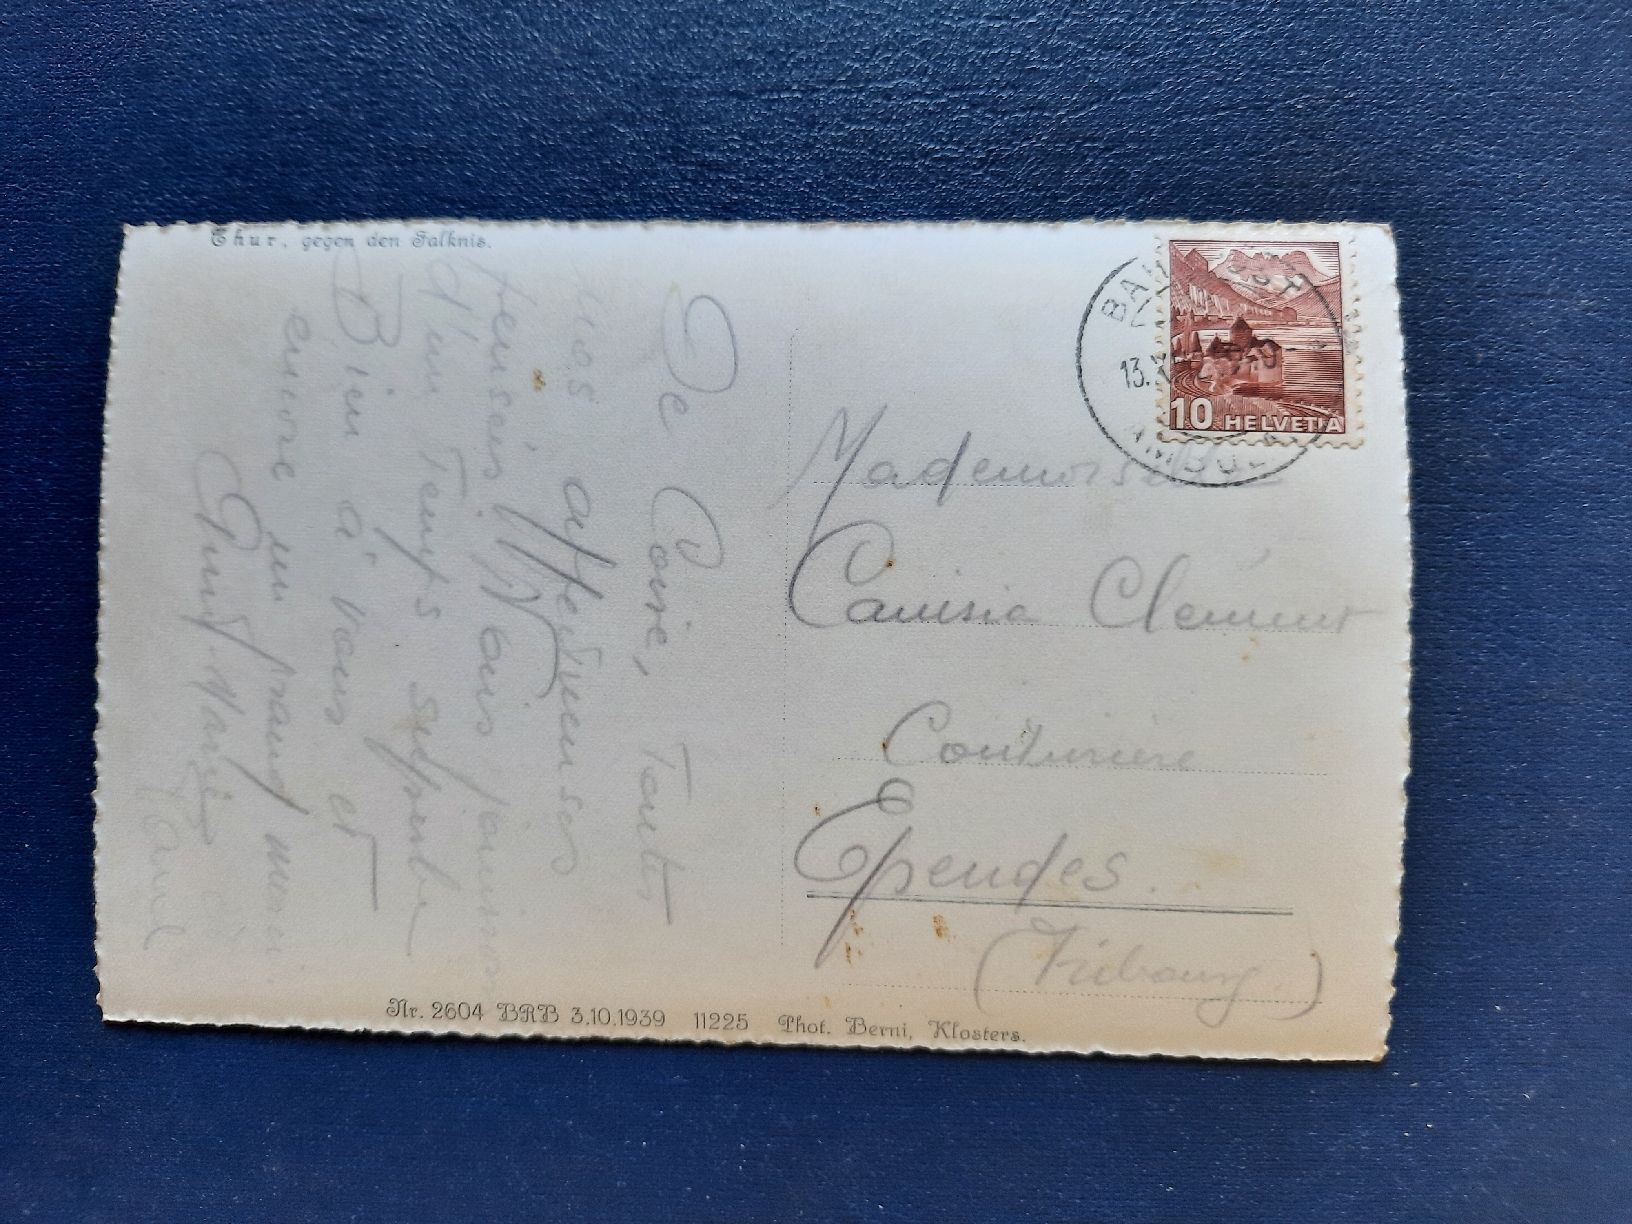 Chur, gegen den Falknis.
De Coire, Toutes
nos affectueuses
pensées. Nous jouissons
d'un Temps superbe
Bien à vous et
encore un grand merci.
10 HELVETIA
BAHNPOST
13.
AMBULANT
Mademoiselle
Canisia Clément
Couturière
Ependes.
(Fribourg.)
Nr. 2604 BRB 3.10.1939 11225 Phot. Berni, Klosters.